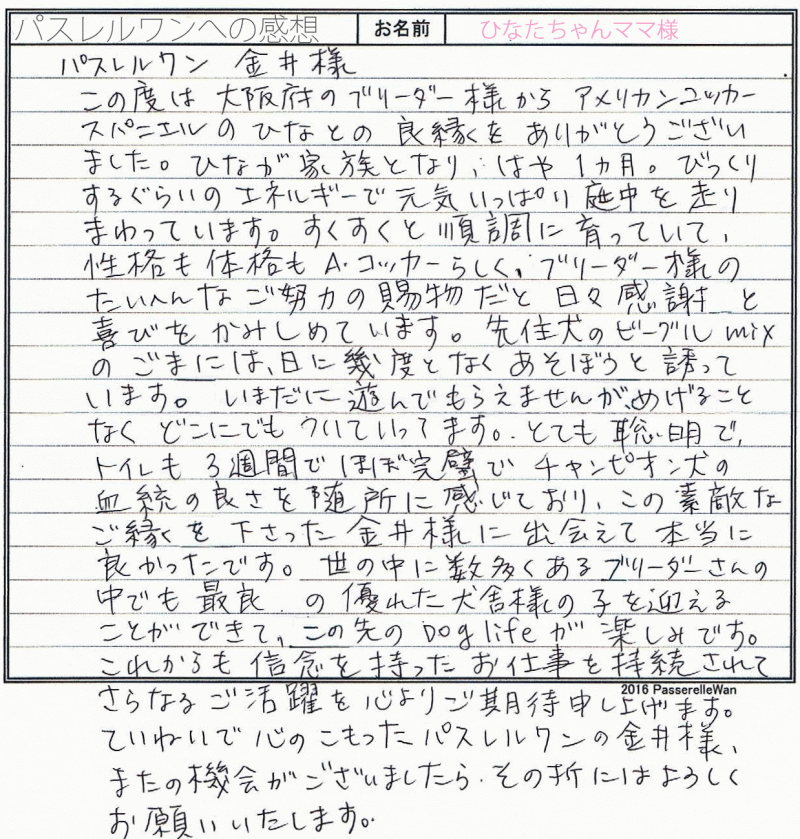 パスレルワンへの感想 お名前 ひなたちゃんママ様
パスレルワン 金井様
この度は 大阪府のブリーダー様から アメリカンコッカー
スパニエルの ひなとの 良縁を ありがとうござい
ました。ひなが 家族となり、はや 1ヵ月。びっくり
するぐらいの エネルギーで 元気いっぱい 庭中を 走り
まわっています。すくすくと 順調に 育っていて、
性格も 体格も A.コッカーらしく、ブリーダー様の
たいへんな ご努力の 賜物だと 日々 感謝 と
喜びを かみしめています。先住犬の ビーグル mix
の ごまには、日に 幾度となく あそぼうと 誘って
います。いまだに 遊んで もらえませんが、めげること
なく どこにでも ついていってます。とても 聡明で、
トイレも 3週間で ほぼ完璧で チャンピオン犬の
血統の 良さを 随所に 感じており、この 素敵な
ご縁を 下さった 金井様に 出会えて 本当に
良かったです。世の中に 数多くある ブリーダーさんの
中でも 最良 の 優れた 犬舎様の 子を 迎える
ことが できて、この先の Dog lifeが 楽しみです。
これからも 信念を 持った お仕事を 持続されて
2016 PasserelleWan
さらなる ご活躍を 心より ご期待申し上げます。
ていねいで 心の こもった パスレルワンの 金井様、
またの機会がございましたら、その折には よろしく
お願いいたします。